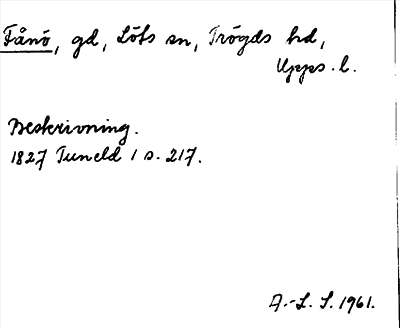 Fånö, gd, Löts sn, Trögds hd,
Upps. l.
Beskrivning.
1827 Tuneld 1 s. 217.
A.-L. S. 1961.